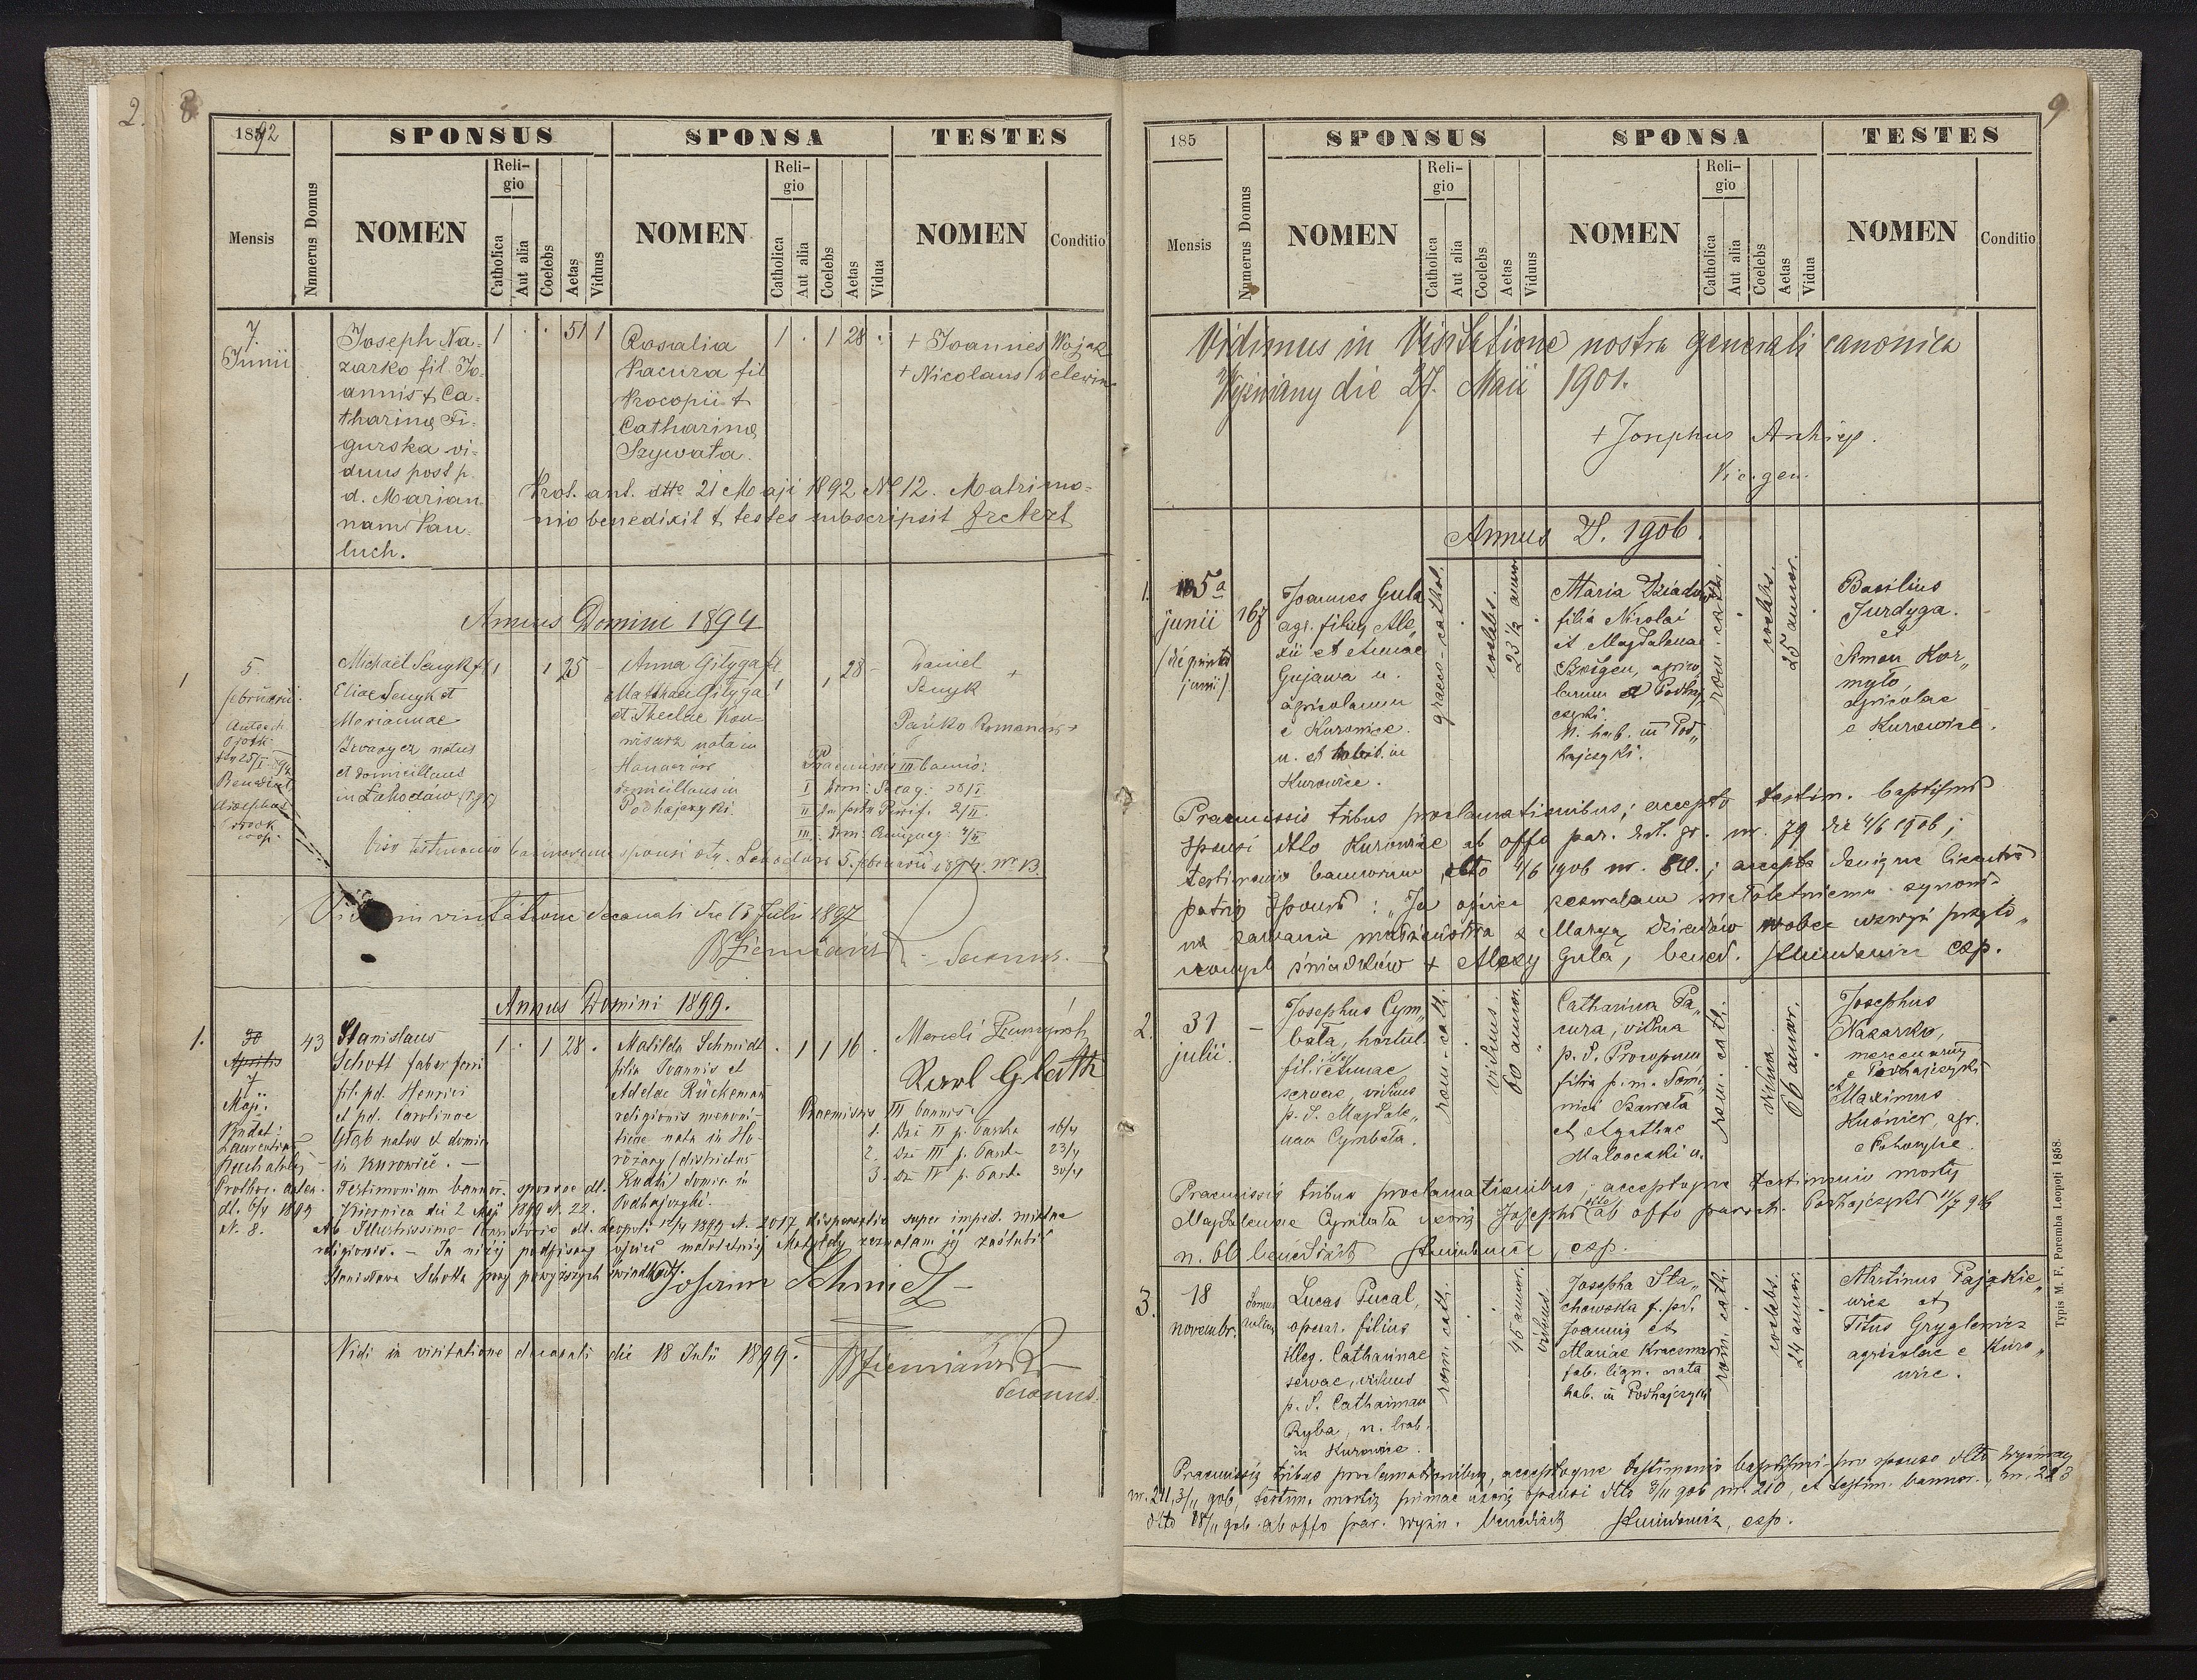 2. 8
1892 SPONSUS SPONSA TESTES
Mensis Numerus Domus NOMEN Religio Catholica Aut alia Coelebs Aetas Viduus NOMEN Religio Catholica Aut alia Coelebs Aetas Vidua NOMEN Conditio
7. Junii
Joseph Na=
zarko fil. Jo=
annis & Ca=
tharinę Fi=
gurska vi=
duus post p.
d. Marian
nam Pau=
luch.
1 . . 51 1
Rosalia
Pacura fil
Procopii &
Catharinę
Szywała.
1 . 1 28 .
+ Joannes Wojak
+ Nicolaus
Prot. ant. dtto 21 Maji 1892 No 12. Matrimo=
nio benedixit & testes subscripsit
Annus Domini 1894
1 5.
februarii
Michaël Senyk f.
Eliae Senyk et
Mariannae
natus
et domicilians
in Łahodów
1 1 25 -
Anna Gityga fa
Matthaei Gityga
et Theclae
nata in
Hanaczów
domicilians in
Podhajczyki.
1 1 28 -
Daniel +
Senyk
Pańko Romanów +
Praemissis III bannis:
I Dom: Sexag: 28/I
II In festo Purif. 2/II
III Dom: Quinquag: 4/II
Viso testimonio bannorum sponsi dto. Łahodów 5. februarii 1894. No 13.
Vidi in visitatione decanali die 13 Juli 1897
Decanus.
Annus Domini 1899.
1. 30
Aprilis
7
Maji.
43
Stanislaus
Schott faber ferri
fil. pd. Henrici
et pd. Carolinae
Głąb natus et domic.
in Kurowice. -
1 . 1 28 .
Matilda Schmidt
filia Joannis et
Adelae Rückeman
religionis menoni-
ticae nata in Ho-
rożany (districtus
Rudki) domic. in
Podhajczyki.
. 1 1 16 .
Karl Glath
Praemissis III bannis:
1. Dni II p. Pascha 16/4
2. Dni III p. Pascha 23/4
3. Dni IV p. Pascha 30/4
Testimonium bannor. sponsae dt.
Kiernica dei 2 Maji 1899 N. 22.
Ab Illustrissimo Consistorio dt. Leopoli 12/4 1899 N. 2017 dispensatio super imped. mixtae
religionis. - Ja niżej podpisany ojciec małoletniej Matyldy zezwalam jej zaślubić
Stanisława Schotta przy powyższych świadkach.
Johann Schmidt
Vidi in visitatione decanali die 18 Julii 1899.
Decanus.
9
185 SPONSUS SPONSA TESTES
Mensis Numerus Domus NOMEN Religio Catholica Aut alia Coelebs Aetas Viduus NOMEN Religio Catholica Aut alia Coelebs Aetas Vidua NOMEN Conditio
Vidimus in Visitatione nostra generali canonica
Wyżniany die 27. Maii 1901.
+ Josephus Archiep.
Vic. gen.
Annus D. 1906.
1. 5a
junii
(die quinta
junii)
167
Joannes Gula
agr. filius Ale„
xii et Annae
Gujawa n.
agricolarum
e Kurowice.
n. et habit. in
Kurowice.
graeco-cathol.
coelebs.
23 1/2 annor.
Maria Dziadów
filia Nicolai
et Magdalenae
agrico„
larum e Podhaj
czyki.
n. hab. in Pod„
hajczyki.
rom: cath:
coelebs.
25 annor.
Basilius
Jurdyga.
et
Simon Kor„
myło,
agricolae
e Kurowice.
Praemissis tribus proclamationibus; accepto testim. baptismi
sponsi dtto Kurowice ab offo par. rit. gr. nr. 79 die 4/6 1906;
testimonio bannorum dtto 4/6 1906 nr. 80.; accepta denique licentia
patris sponsi: „Ja ojciec zezwalam małoletniemu synowi
na zawarcie małżeństwa z Maryą Dziadów wobec wzwyż przyto„
czonych świadków + Alexy Gula, bened. exp.
2. 31
julii.
-
Josephus Cym„
bała, hortul.
fil. Annae
servae, viduus
p. d. Magdale„
nam Cymbała.
rom-cath.
viduus.
60 annor.
Catharina Pa„
cura, vidua
p. d. Procopium
filia p. m. Domi„
nici Szawała
et Agathae
rom. cath.
vidua
66 annor.
Josephus
Nazarko,
mercenarius
e Podhajczyki
et Maximus
Kuśnier, agr.
Praemissis tribus proclamationibus; acceptoque testimonio mortis
Magdalenae Cymbała uxoris Josephi dtto ab offo paroch. Podhajczyki 11/7 906
n. 66 benedixit exp.
3. 18
novembr.
Lucas Pucal,
operar. filius
illeg. Catharinae
servae, viduus
p. d. Catharinam
Ryba, n. hab.
in Kurowice.
rom. cath.
46 annor.
viduus
Josepha Sta„
chowska f. pd.
Joannis et
Mariae Kraczmar
fab. lign. nata
hab. in Podhajczyki
rom. cath.
coelebs.
24 annor.
Martinus Pająkie„
wicz et
Titus Gryglewicz
agricolae e Kuro„
wice.
Praemissis tribus proclamationibus, acceptoque testimonio baptismi pro sponso dtto Wyżniany
nr. 211, 3/11 906, testim. mortis primae uxoris sponsi dtto 3/11 906 nr. 210, et testim. bannor. nr. 223
dtto 18/11 906 ab offo par. Wyżn. benedixit exp.
Typis M. F. Poremba Leopoli 1858.